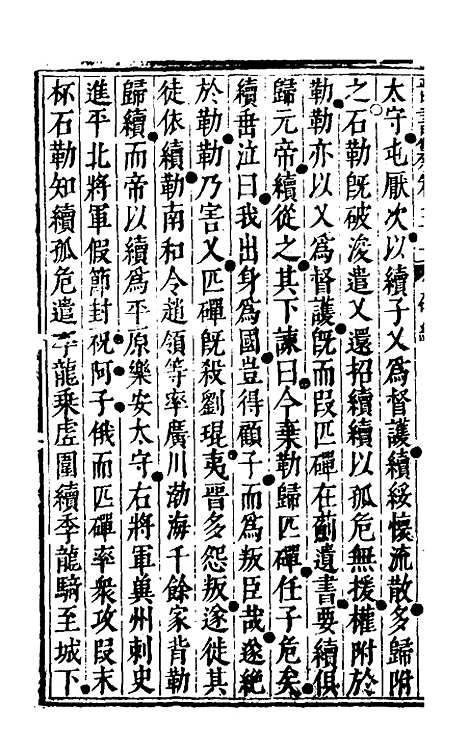 太守屯厭次以續子乂爲督護續綏懷流散多歸附
之石勒旣破浚遣乂還招續續以孤危無援權附於
勒勒亦以乂爲督護旣而段匹磾在薊遺書要續俱
歸元帝續從之其下諫曰今棄勒歸匹磾任子危矣
續垂泣曰我出身爲國豈得顧子而爲叛臣哉遂絶
於勒勒乃害乂匹磾旣殺劉琨夷晉多怨叛遂徙其
徒依續勒南和令趙領等率廣川渤海千餘家背勒
歸續而帝以續爲平原樂安太守右將軍兾州刺史
進平北將軍假節封祝阿子俄而匹磾率衆攻段末
杯石勒知續孤危遣季龍乘虛圍續季龍騎至城下